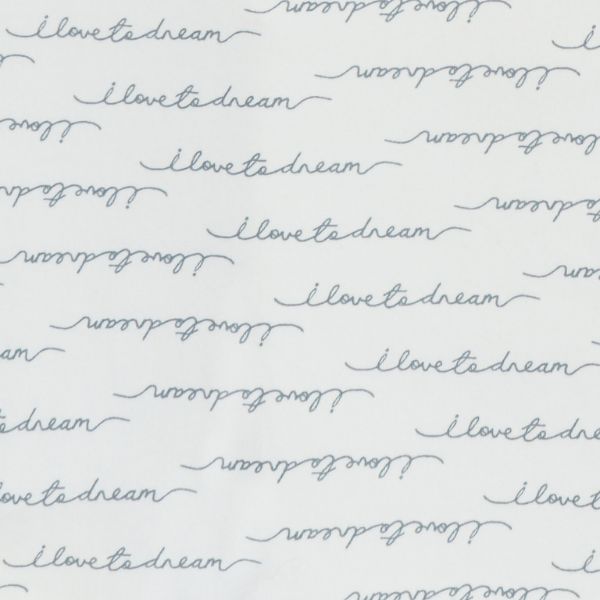 i love to dream
i love to dream
i l
i love to dream
i love to dream
i love
i love to dream
i love to dream
i love to dr
to dream
i love to dream
i love to dream
am
i love to dream
i love to dream
am
i love to dream
i love to dream
o dream
i love to dre
i love to dream
love to dream
i love t
i love to dream
i love to dream
i l
i love to dream